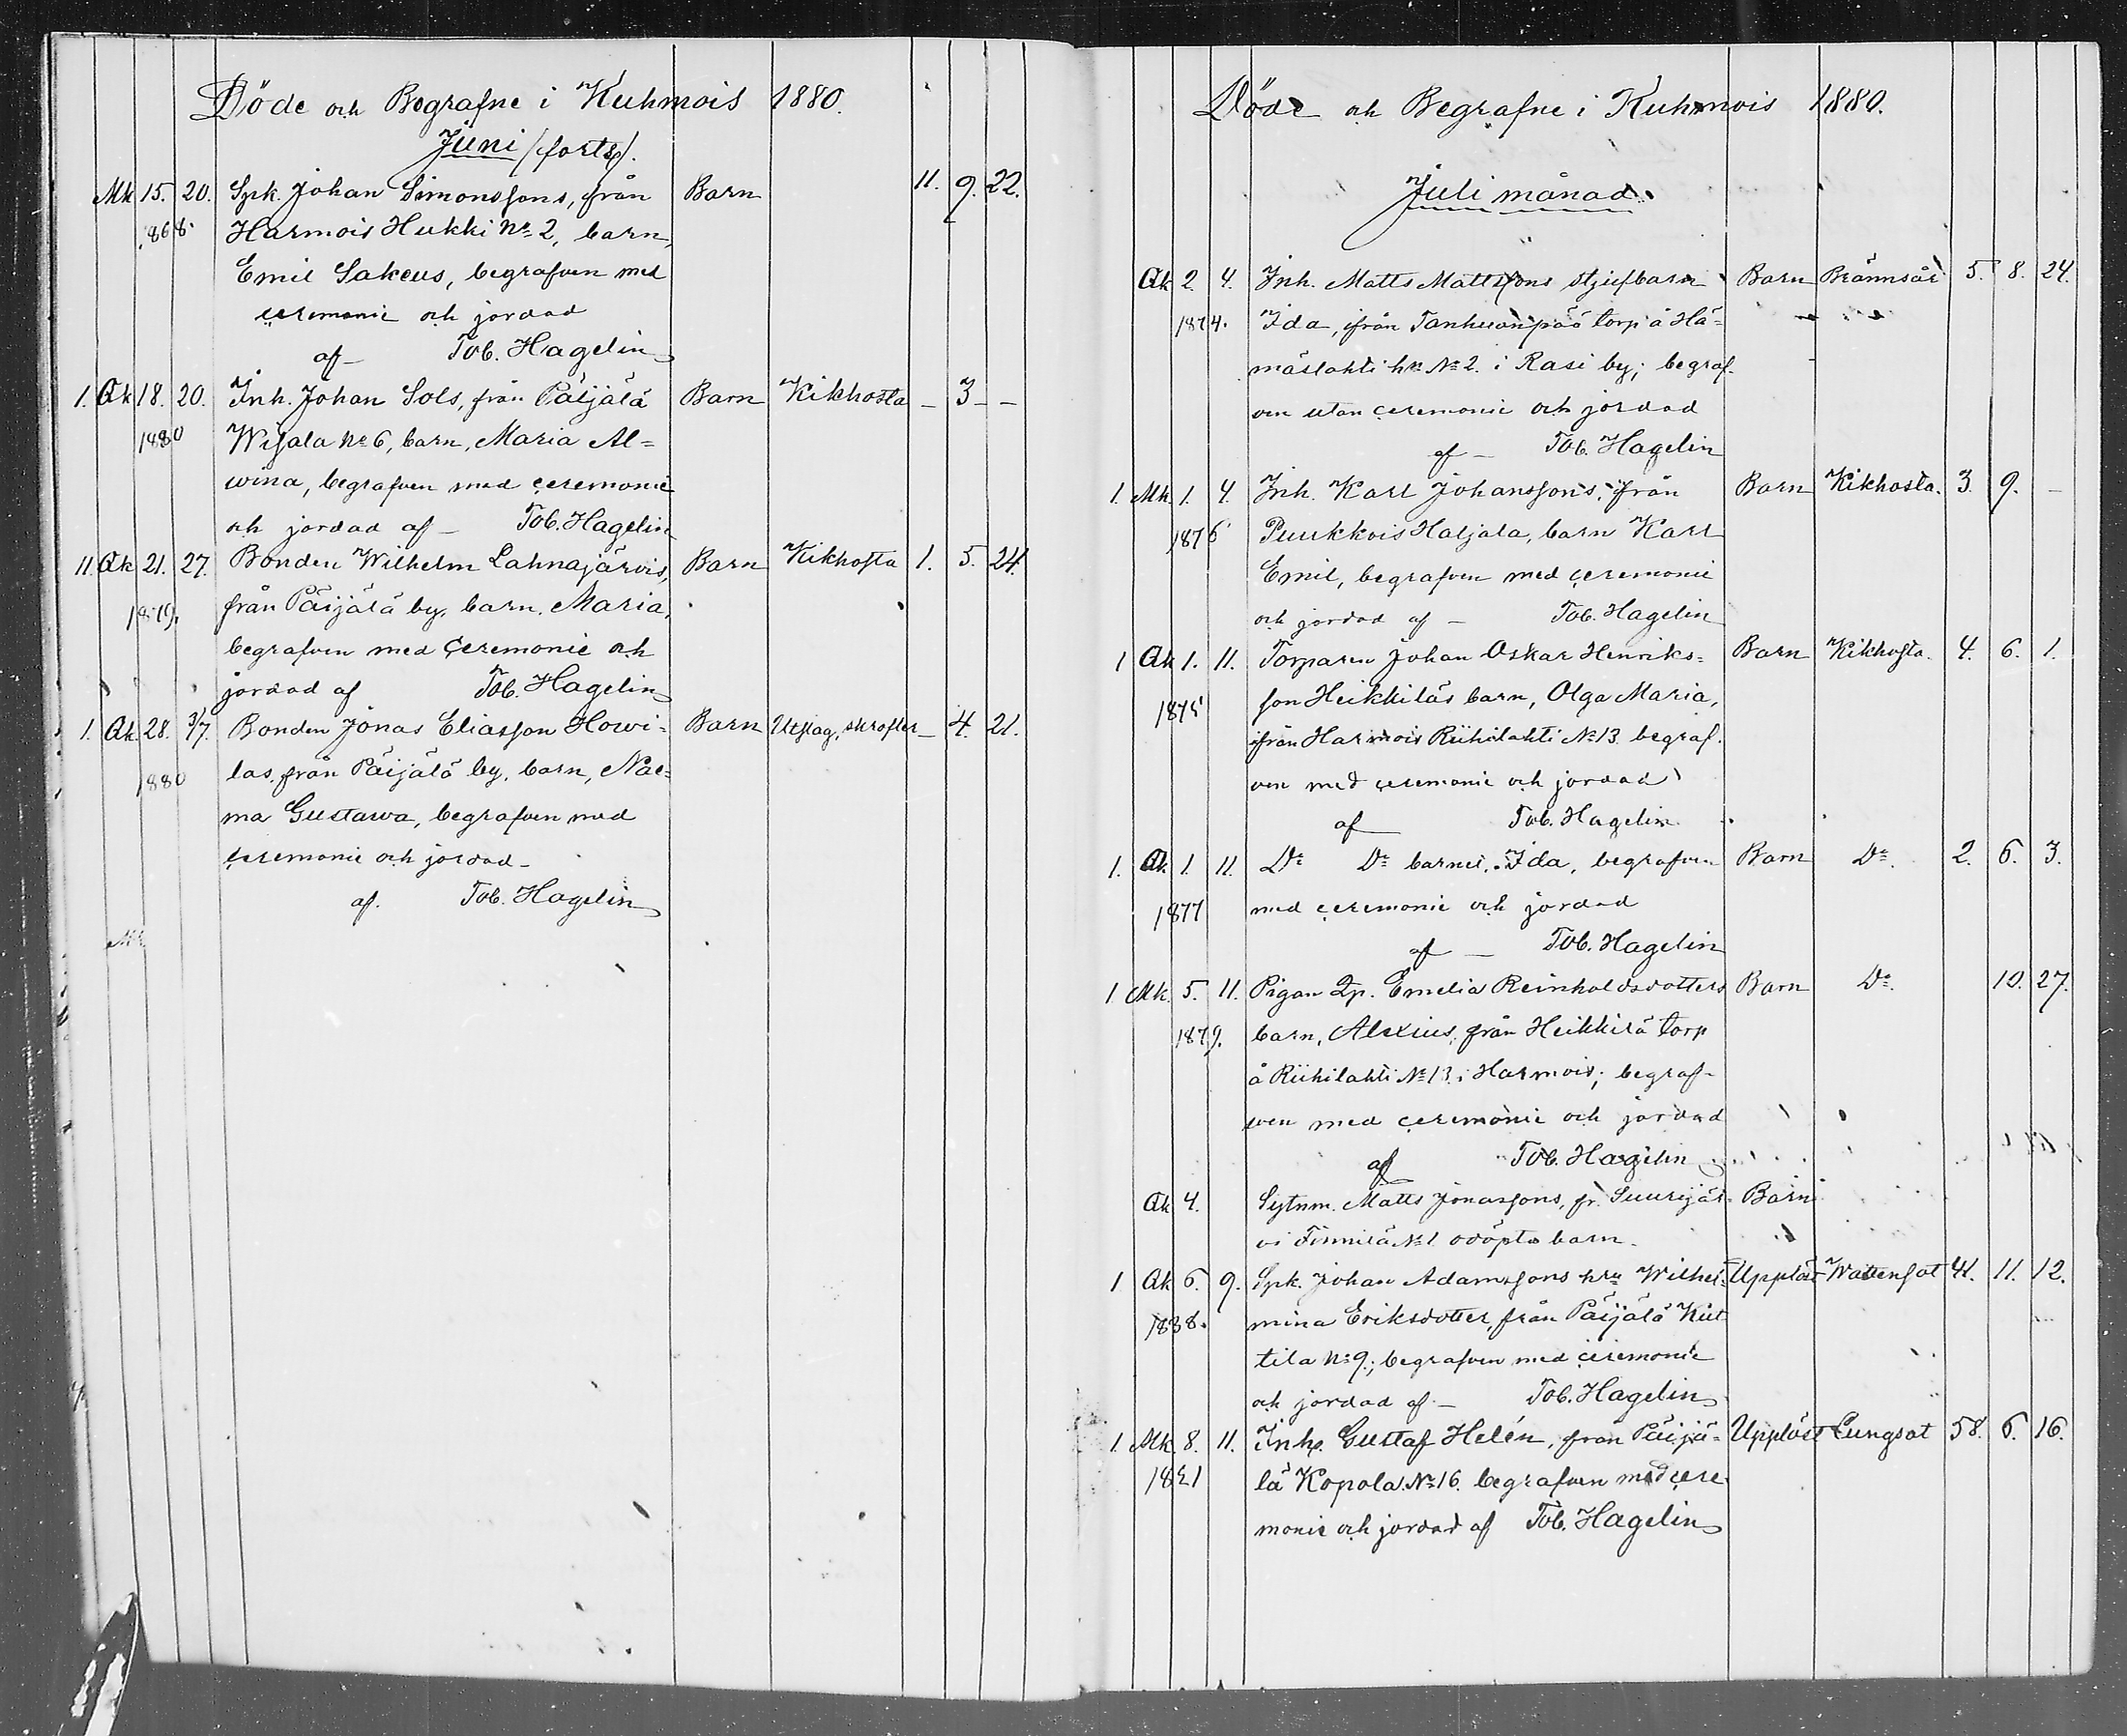 Döde och Begrafne i Kuhmois 1880.
Juni (forts).
Mk 15. 20. Spk. Johan Simonssons, från Barn 11. 9. 22.
1868. Harmois Hukki No 2, barn,
Emil Sakeus, begrafven med
ceremonie och jordad
af – Tob. Hagelin
1. Qk 18. 20. Inh. Johan Sols, från Päijälä Barn Kikhosta – 3 – –
1880 Wihala No 6, barn, Maria Al=
wina, begrafven med ceremonie
och jordad af – Tob. Hagelin
11. Qk 21. 27. Bonden Wilhelm Lahnajärvis, Barn Kikhosta 1. 5. 24.
1879. från Päijälä by, barn, Maria,
begrafven med Ceremonie och
jordad af Tob. Hagelin
1. Qk 28. 3/7. Bonden Jonas Eliasson Howi= Barn Utslag, skrofler – 4. 21.
1880 las, från Päijälä by, barn, Nae=
ma Gustawa, begrafven med
ceremonie och jordad –
af. Tob. Hagelin
Mk
Döde och Begrafne i Kuhmois 1880.
Juli månad.
Qk 2. 4. Inh. Matts Mattssons styfbarn Barn Brännsår 5. 8. 24.
1874. Ida, ifrån Tanhuanpää torp å Hä=
mäslahti hn No 2. i Rasi by; begraf-
ven utan ceremonie och jordad
af – Tob. Hagelin
1. Mk. 1. 4. Inh. Karl Johanssons, från Barn Kikhosta. 3. 9. –
1876 Puukkois Haljala, barn Karl
Emil, begrafven med ceremonie
och jordad af – Tob. Hagelin
1 Qk 1. 11. Torparen Johan Oskar Henriks= Barn Kikhosta. 4. 6. 1.
1875 son Heikkiläs barn, Olga Maria,
ifrån Harmois Riihilahti No 13. begraf-
ven med ceremonie och jordad
af Tob. Hagelin
1. Qk. 1. 11. Do Do barnet, Ida, begrafven Barn Do. 2. 6. 3.
1877 med ceremonie och jordad
af – Tob. Hagelin
1 Mk. 5. 11. Pigan Qp. Emelia Reinholdsdotters Barn Do. 10. 27.
1879. barn, Alexius, från Heikkilä torp
å Riihilahti No 13. i Harmois; begraf-
ven med ceremonie och jordad
af Tob. Hagelin
Qk 4. Sytnm. Matts Jonassons, fr. Suurijär- Barn
vi Finnilä No 1 odöpta barn.
1 Qk 6. 9. Spk. Johan Adamssons hru Wilhel= Upplöst Wattensot 41. 11. 12.
1838. mina Eriksdotter, från Päijälä Kut
tila No 9.; begrafven med ceremonie
och jordad af – Tob. Hagelin
1 Mk. 8. 11. Inhs. Gustaf Helén, från Päijä= Upplöst Lungsot 58. 6. 16.
1821 lä Kopola No 16. begrafven med cere
monie och jordad af Tob. Hagelin